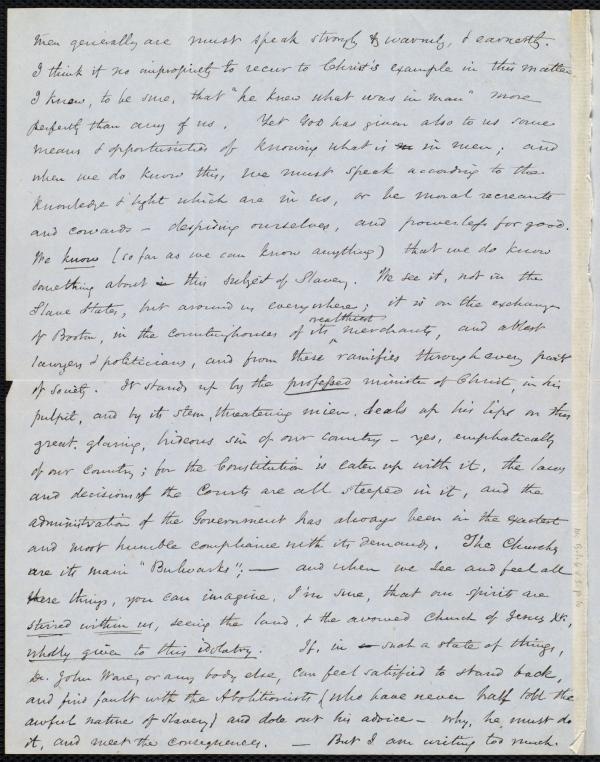 men generally are must speak strongly & warmly, & earnestly.
I think it no impropriety to recur to Christ's example in this matter.
I know, to be sure, that "he knew what was in man" more
perfectly than any of us. Yet God has given also to us some
means & opportunities of knowing what is in men; and
when we do know this, we must speak according to the
knowledge & light which are in us, or be moral recreants
and cowards – despising ourselves, and powerless for good.
We know (so far as we can know anything) that we do know
something about this subject of Slavery. We see it, not in the
Slave States, but around us everywhere; it is on the exchange
of Boston, in the countinghouses of its wealthiest merchants, and ablest
lawyers & politicians, and from these ramifies through every part
of society. It stands up by the professed minister of Christ, in his
pulpit, and by its stern, threatening mien, seals up his lips on this
great, glaring, hideous sin of our country – yes, emphatically
of our country; for the Constitution is eaten up with it, the laws
and decisions of the Courts are all steeped in it, and the
administration of the Government has always been in the exactest
and most humble compliance with its demands. The Churches
are its main "Bulwarks"; — and when we see and feel all
these things, you can imagine, I'm sure, that our spirits are
stirred within us, seeing the land, & the avowed Church of Jesus Xt.,
wholly given to this idolatry. If, in such a state of things,
Dr. John Ware, or any body else, can feel satisfied to stand back,
and find fault with the Abolitionists (who have never half told the
awful nature of Slavery) and dole out his advice – why, he must do
it, and meet the consequences. — But I am writing too much.